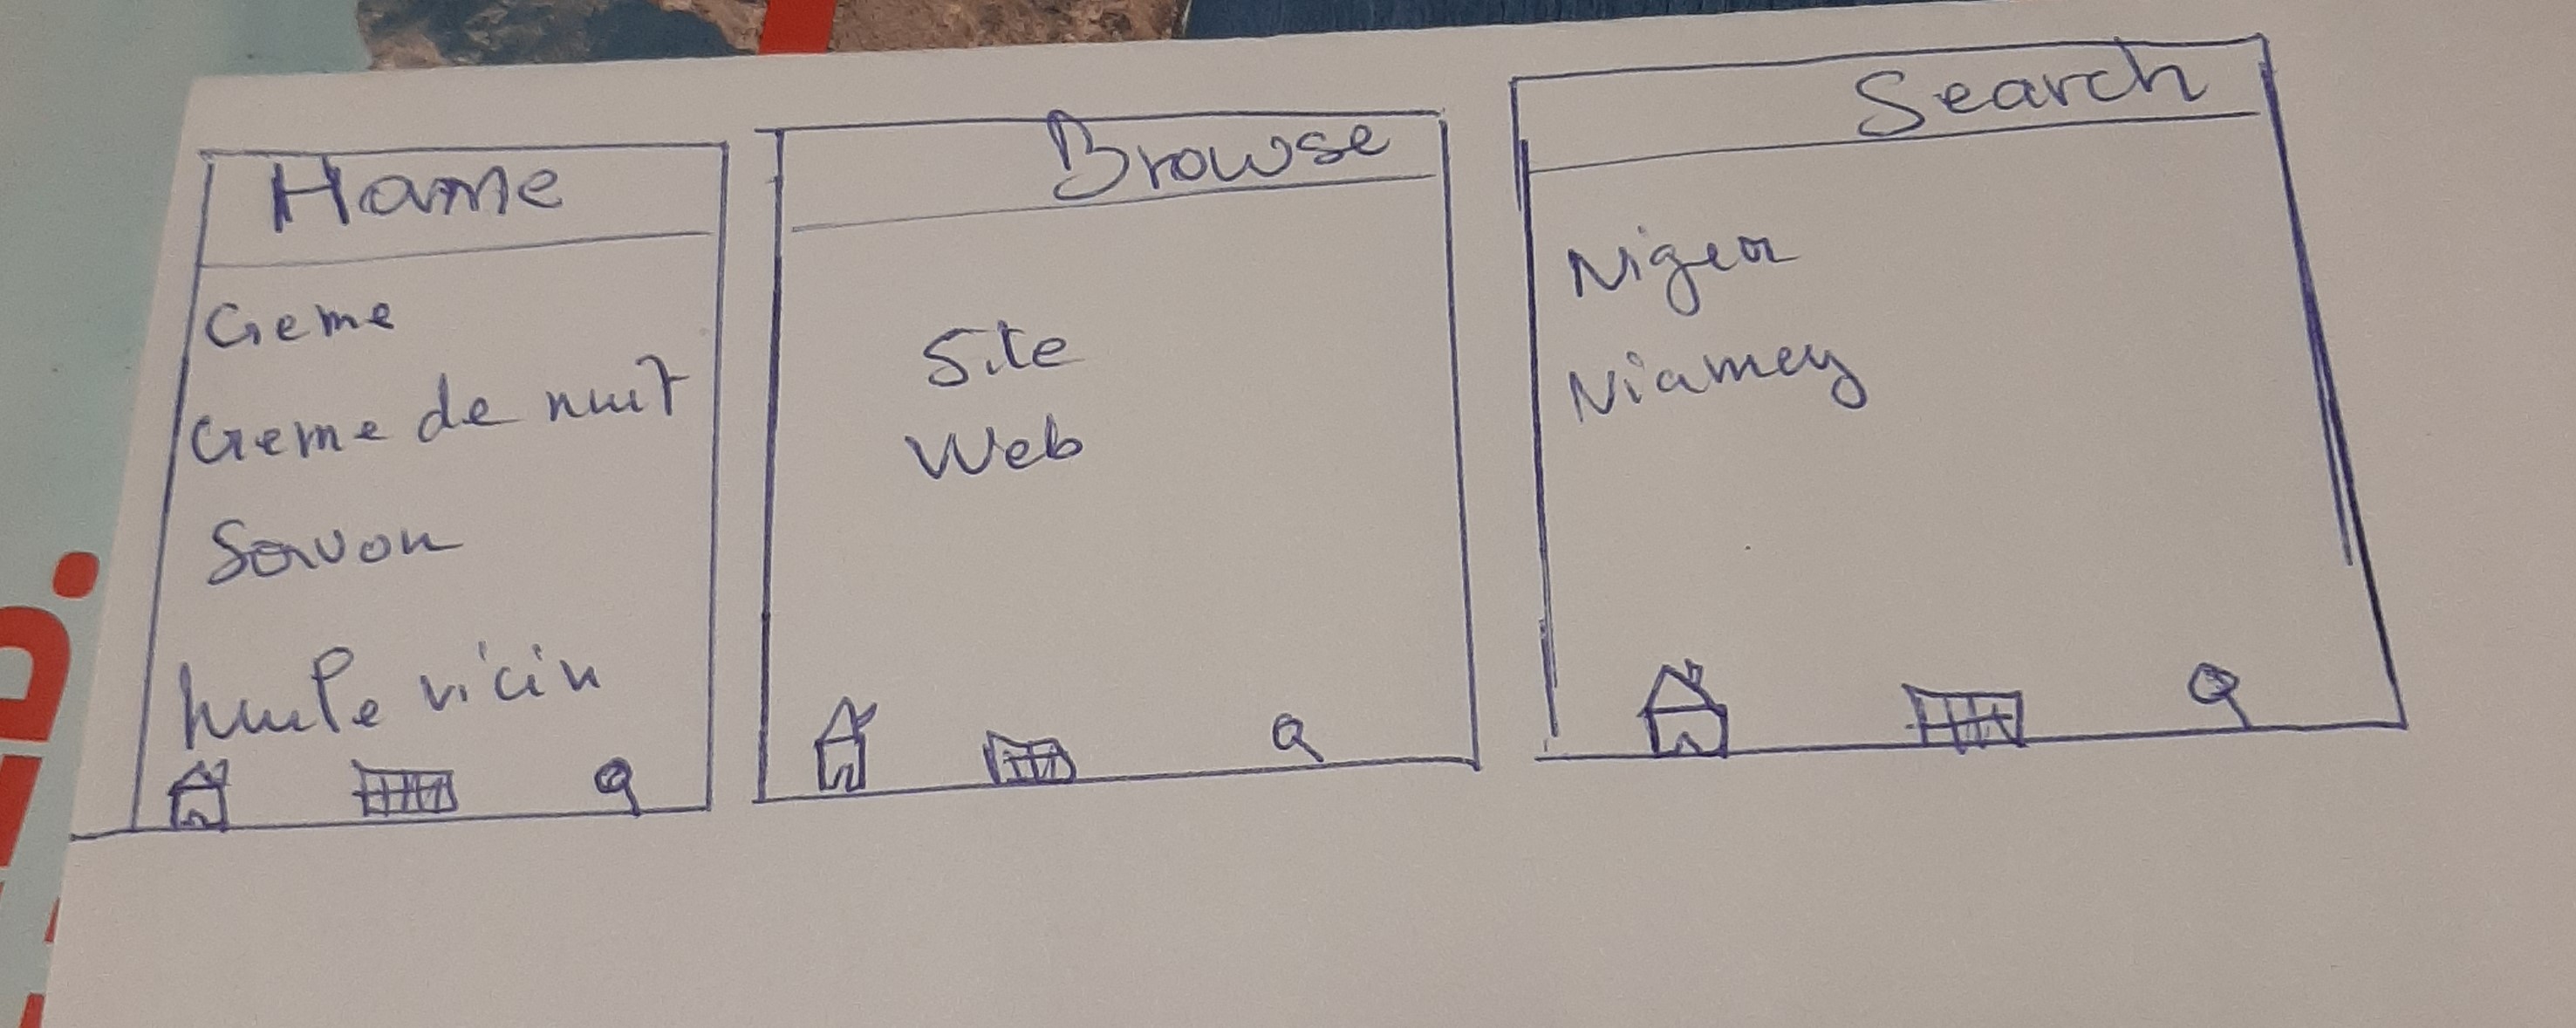 Home
Creme
Creme de nuit
Savon
huile ricin
Browse
Site
Web
Search
Niger
Niamey